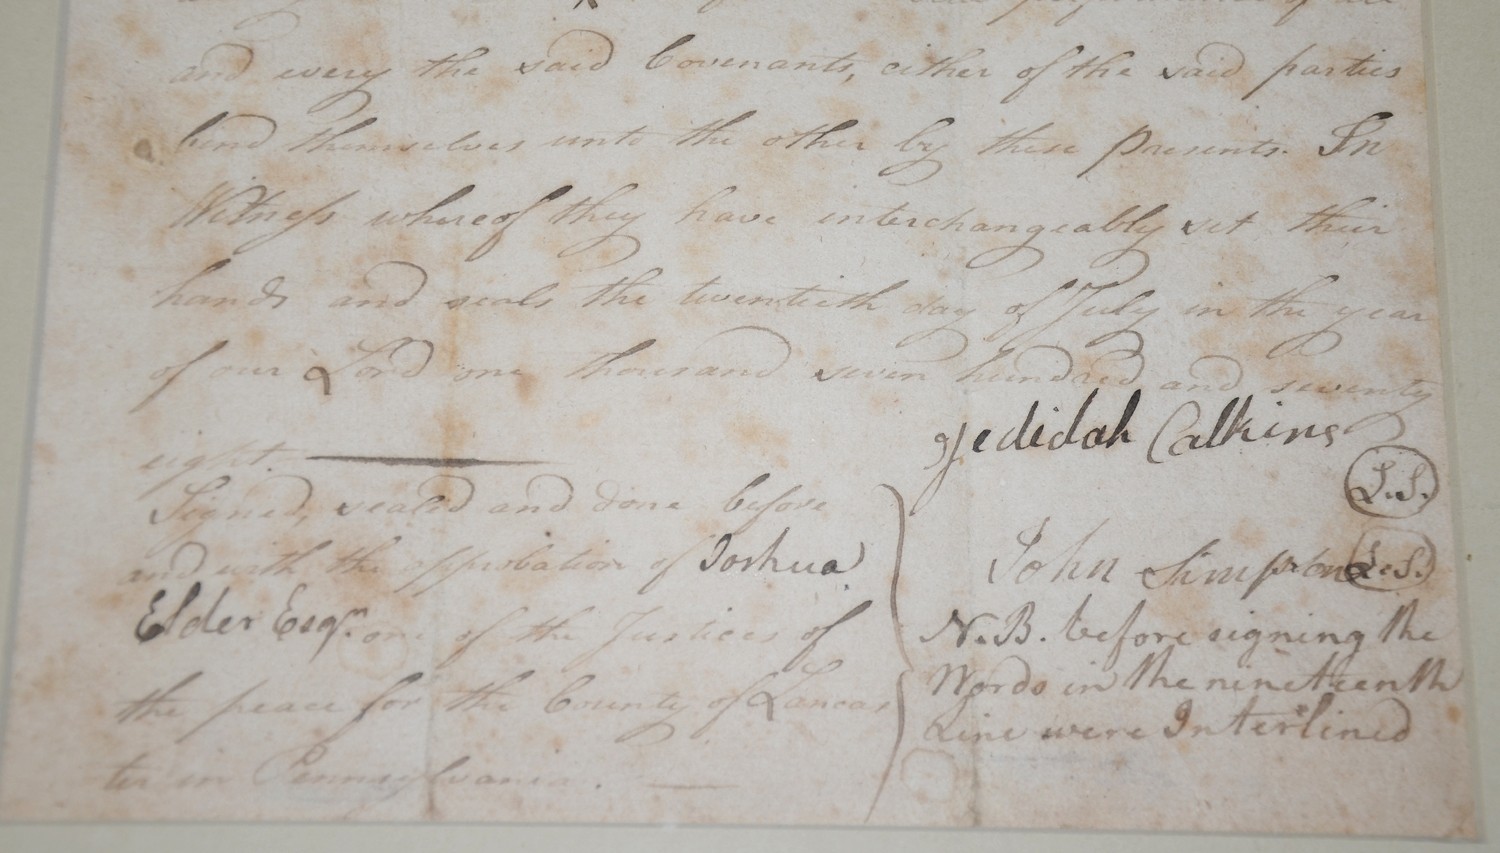 performance of all
and every the said Covenants, either of the said parties
bind themselves unto the other by these presents. In
Witness whereof they have interchangeably set their
hands and seals the twentieth day of July in the year
of our Lord one thousand seven hundred and seventy
eight.
Jedidah Calkins
L.S.
John Simpson L.S.
Signed, sealed and done before
and with the approbation of Joshua
Elder Esqr. one of the Justices of
the peace for the County of Lancas
ter in Pennsylvania.
N.B. before signing the
Words in the nineteenth
Line were Interlined